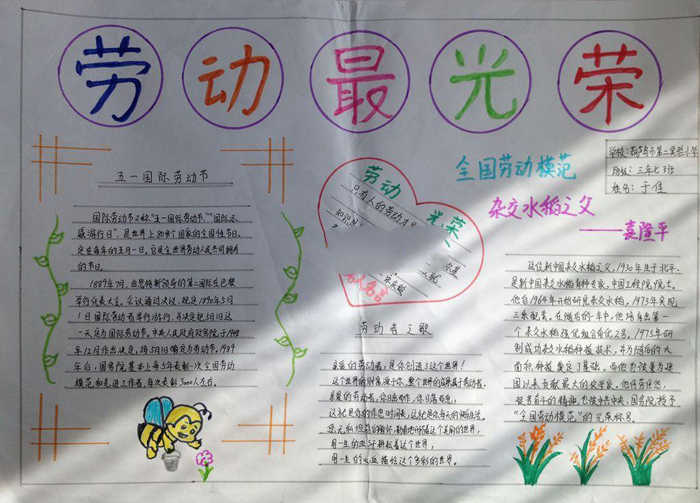 劳动最光荣
五一国际劳动节
国际劳动节又称“五一国际劳动节”“国际示
威游行日”,是世界上80多个国家的全国性节日。
定在每年的五月一日。它是全世界劳动人民共同拥有
的节日。
1889年7月,由恩格斯领导的第二国际在巴黎
举行代表大会。会议通过决议,规定1890年5月
1日国际劳动者举行游行,并决定把5月1日这
一天定为国际劳动节。中央人民政府政务院于1949
年12月作出决定,将5月1日确定为劳动节。1989
年后,国务院基本上每5年表彰一次全国劳动
模范和先进工作者,每次表彰3000人左右。
劳动 光荣
只有人的劳动才是
名人名言
劳动者之歌
亲爱的劳动者,是你创造了这个世界!
这个世界的财富源于你,整个世界的品牌属于劳动者。
亲爱的劳动者,你日出而作,你日落而息,
这就是你的作息时间表,这就是你每天的生活。
用一生的血汗耕耘着这个世界,
用一生的心血描绘这个多彩的世界。
全国劳动模范
杂交水稻之父
——袁隆平
学校:葫芦岛市第二实验小学
班级:三年七班
姓名:于佳
这位新中国杂交水稻之父,1930年生于北平,
是新中国杂交水稻育种专家,中国工程院院士。
他自1964年开始研究杂交水稻,1973年实现
三系配套,在随后的一年中,他培育出第一
个杂交水稻强优组合南优2号。1975年研
制成功杂交水稻种植技术,并为随后的大
面积种植奠定了基础。
“全国劳动模范”的光荣称号。